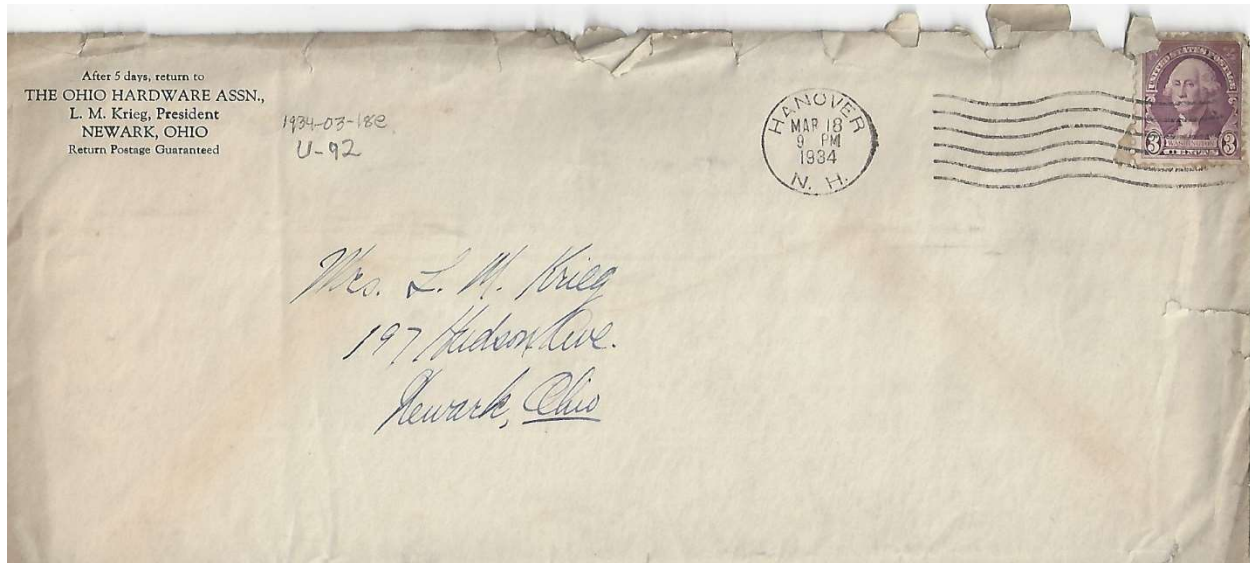 After 5 days, return to
THE OHIO HARDWARE ASSN.,
L. M. Krieg, President
NEWARK, OHIO
Return Postage Guaranteed
1934-03-18e
U-92
HANOVER
MAR 18
9 PM
1934
N. H.
UNITED STATES POSTAGE
3 WASHINGTON 3
Mrs. L. M. Krieg
197 Hudson Ave.
Newark, Ohio